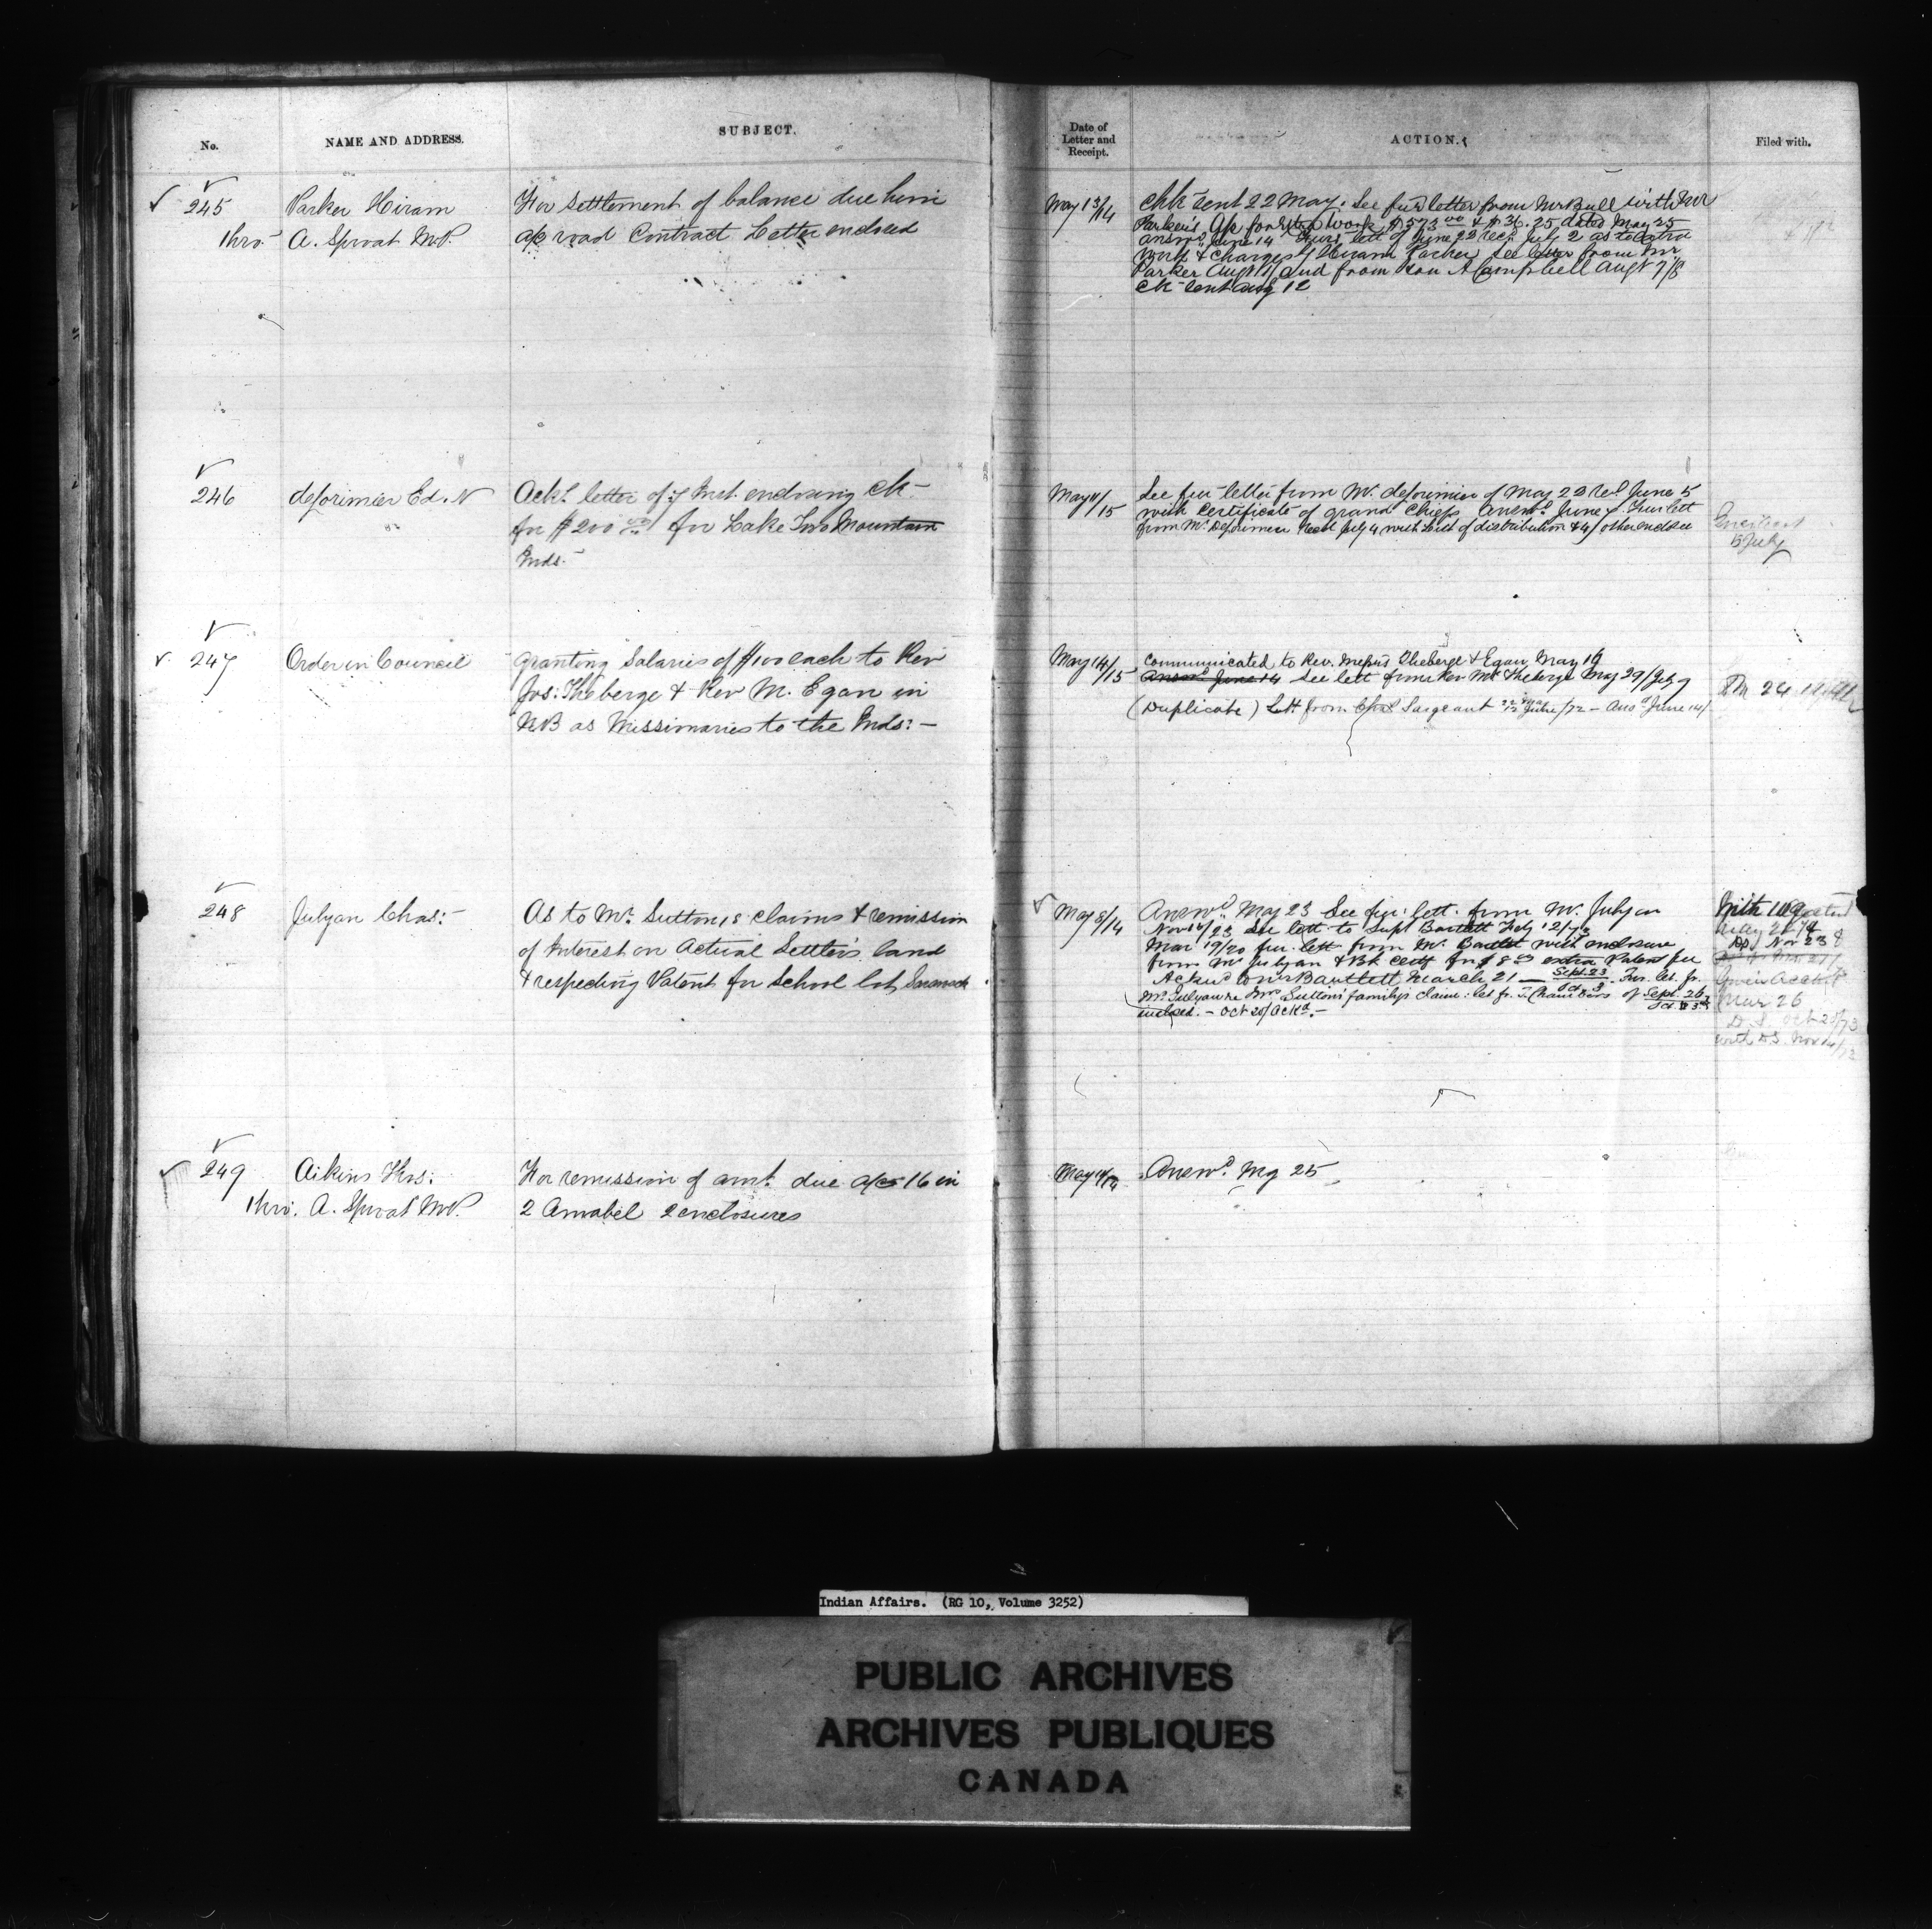 No.
NAME AND ADDRESS.
SUBJECT.
Date of
Letter and
Receipt.
ACTION.
Filed with.
245
Parker Hiram
thro' A. Sproat M.P.
For settlement of balance due him
a/c road Contract Letter enclosed
May 13/14
Chk sent 22 May. See fur letter from Mr Bull with Mr
Parker's a/c for extra work $573 00 & $36.25 dated May 25
answd June 14 Fur lett of June 22 recd July 2 as to extra
work & charges of Hiram Parker See letter from Mr
Parker Augt and from Hon A Campbell Augt 7/8
ck sent aug 12
246
deLorimier Ed. N
Ackg letter of 7 Inst. enclosing ck
for $200 00 for Lake Two Mountain
Inds.
May 11/15
See fur letter from Mr. deLorimier of May 22 recd June 5
with Certificate of grand Chiefs Answd June 7 Fur lett
from Mr DeLorimier Recd July 4 with List of distribution & 4 other encls
July
247
Order in Council
granting Salaries of $100 each to Rev
Jos: Theberge & Rev M. Egan in
N.B as Missionaries to the Inds: -
May 14/15
Communicated to Rev. Messrs Theberge & Egan May 19
Answd June 14 See lett from Rev Mr Theberge May 29/July 9
(Duplicate) Lett from Sargeant June/72 - Ansd June 14/
24
248
Julyan Chas:
As to Mr. Sutton's claims & remission
of Interest on Actual Settler's land
& respecting Patent for School lot Sarawak
May 8/14
Answd May 23 See fur: lett. from Mr. Julyan
Nov 14/23 See lett to Supt Bartlett Feby 12/73
Mar 19/20 fur. lett from Mr. Bartlett with enclosure
from Mr Julyan & Bk Certf for $8 00 extra Patent fee
Acknd to Mr Bartlett March 21 — Sept. 23 / Oct. 3 Fur. let. fr.
Mr. Julyan re Mrs Sutton's family's claim: let fr. T. Chambers of Sept. 26 / Oct. 3
enclosed. - Oct 20/ Ackd. -
With 109
May 21
Nov 23
Mar 26
D.S. Oct 20/73
with D.S. Nov
249
Aikins Thos:
thro'. A. Sproat M.P.
For remission of amt. due a/c 16 in
2 Amabel 2 enclosures
May 11/14
Answd. My 25
Indian Affairs. (RG 10, Volume 3252)
PUBLIC ARCHIVES
ARCHIVES PUBLIQUES
CANADA